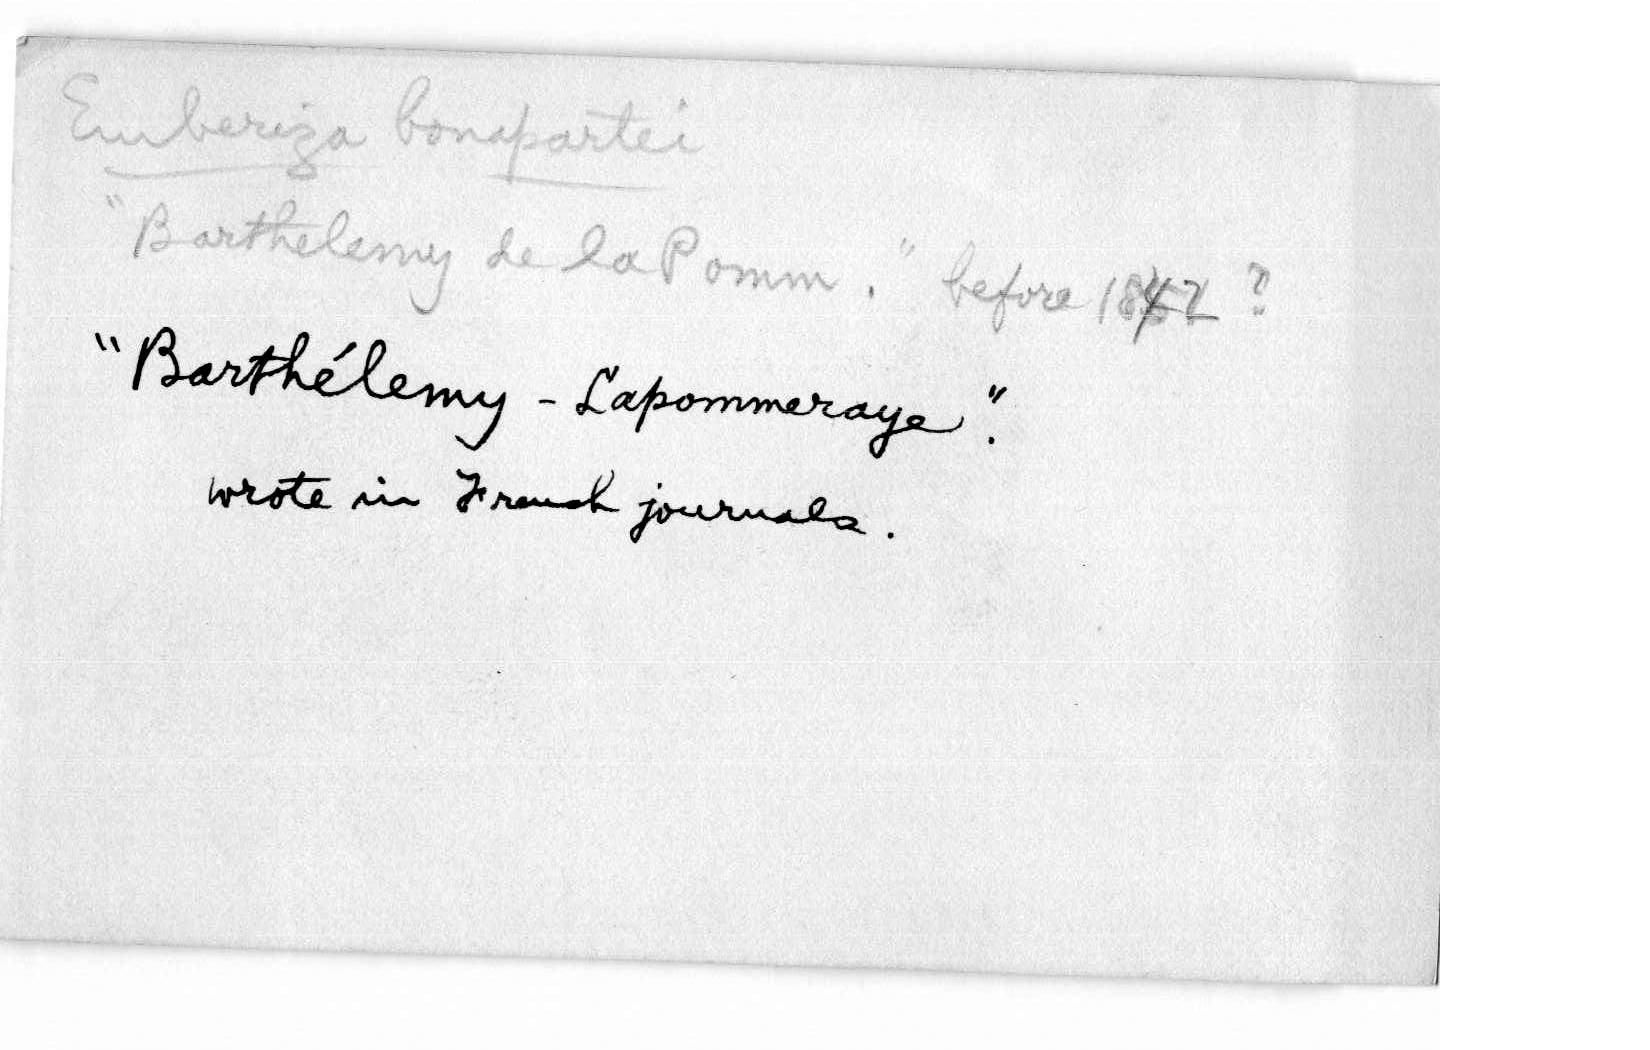 Emberiza bonapartei
"Barthelemy de la Pomm." before 1842 ?
"Barthélemy - Lapommeraye".
wrote in French journals.